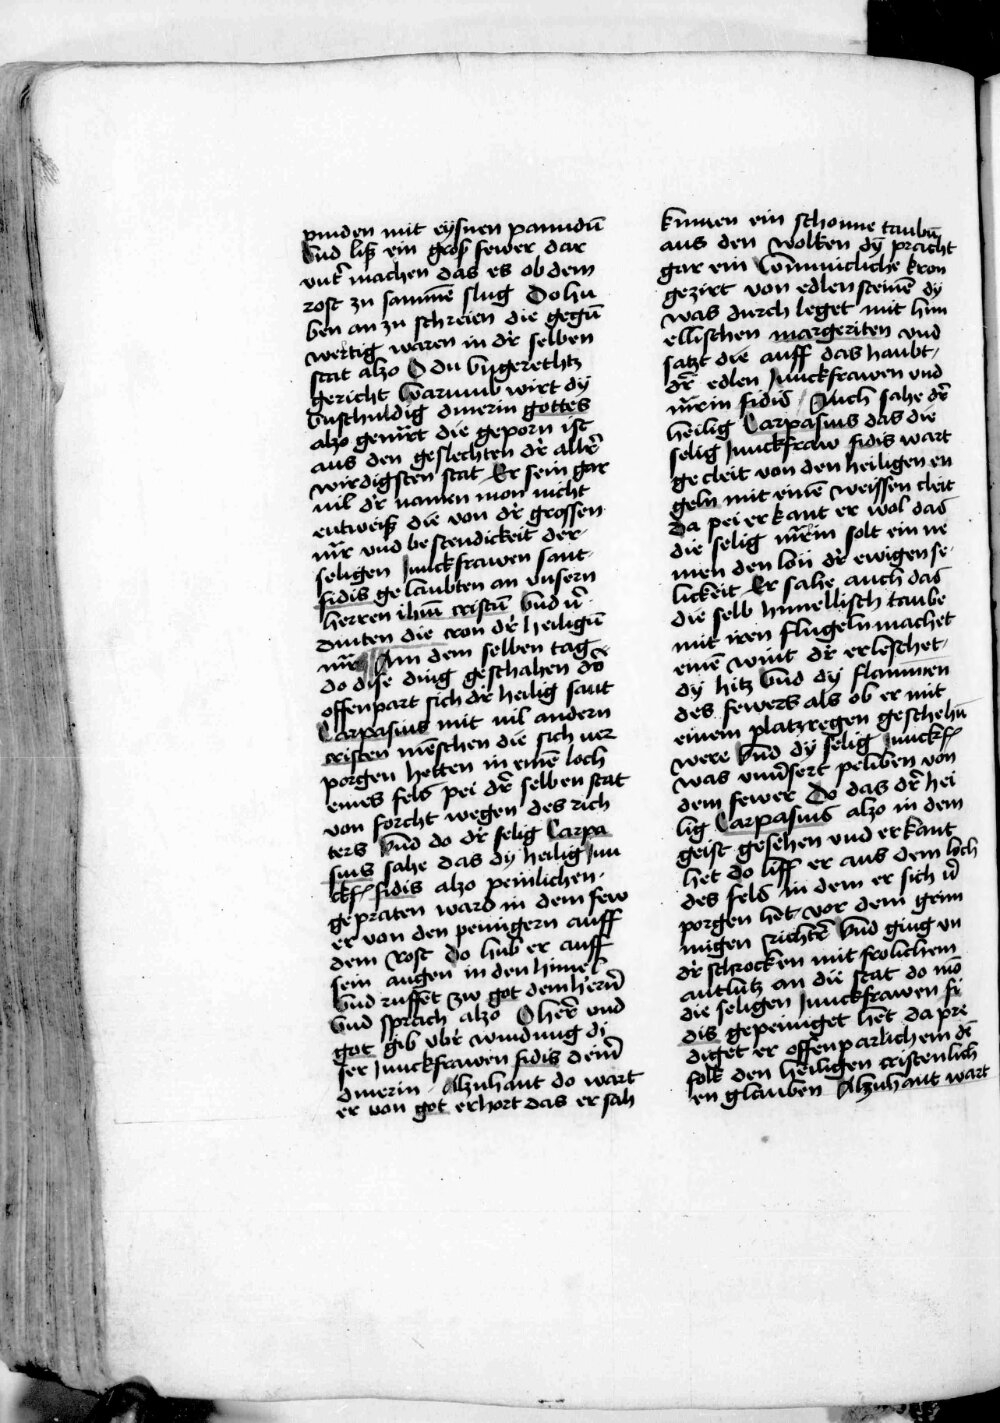 pinden mit eysnen panndū
Vnd liß ein groß fewer dar
vnt̄ machen das es ob dem
rost zu sammē slug Do hu
ben an zu schreien die gegū
wertig waren in dr̄ selben
stat alzo O du vngerechtz
gericht Warumb wirt dy
Vnschuldig dinerin gottes
alzo gemr̄t die geporn ist
aus den geslechten dr̄ altr̄
wirdigsten stat Er sein gar
uil dr̄ namen mon nicht
entweiß die von dr̄ grossen
mr̄ vnd bestendickeit der
seligen Junckfrawen sant
fidis gelaubten an vnsern
herren ihm̄ cristū Vnd v̄
dinten die cron dr̄ heiligū
mr̄ An dem selben tag
do dise ding geschahen do
offenpart sich dr̄ heilig sant
Carpasius mit uil andern
cristen mēschen die sich uer
porgen hetten in einē loch
eines fels pei dr̄ selben stat
von forcht wegen des rich
ters Vnd do dr̄ selig Carpa
sius sahe das dy heilig Jun
ckf fidis alzo peinlichen
gepraten ward in dem few
er von den peinigern auff
dem rost do hub er auff
sein augen in den himel
Vnd ruffet zw got dem hern̄
Vnd sprach alzo O her̄ vnd
got gib vbr̄ windung di
ser Junckfrawen fidis dein̄
dinerin Alzuhant do wart
er von got erhort das er sah
kumen ein schonne taubn̄
aus den wolken dy pracht
gar ein Wunnicliche kron
gezirt von edlen steinē dy
was durch leget mit him
ellischen margeriten vnd
satzt die auff das haubt
dr̄ edlen Junckfrawen vnd
mr̄in fidis Auch sahe dr̄
heilig Carpasius das die
selig Junckfraw fidis wart
gecleit von den heiligen en
geln mit einē weissen cleit
da pei erkant er wol das
die selig mr̄in solt ein ne
men den lon dr̄ ewigen se
lickeit Er sahe auch das
die selb himellisch taube
mit iren flugeln machet
einē wint dr̄ erleschet
dy hitz Vnd dy flammen
des fewers als ob er mit
einem platzregen geschehn̄
were Vnd dy selig Junckf
was vnuersert peliben von
dem fewer Do das dr̄ hei
lig Carpasius alzo in dem
geist gesehen vnd erkant
het do liff er aus dem loch
des fels in dem er sich v̄
porgen het vor dem grim
migen richtr̄ Vnd ging vn
dr̄schrocken mit frolichem
antlutz an die stat do mō
die seligen Junckfrawen fi
dis gepeiniget het da pre
diget er offenparlich ein dē
folk den heiligen cristenlich
en glauben Alzuhant wart